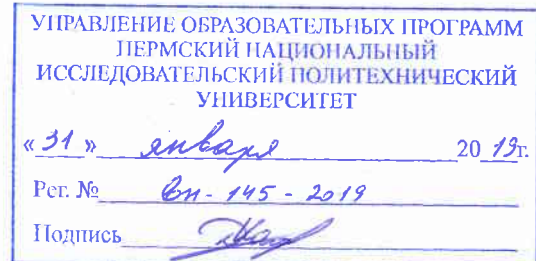 УПРАВЛЕНИЕ ОБРАЗОВАТЕЛЬНЫХ ПРОГРАММ
ПЕРМСКИЙ НАЦИОНАЛЬНЫЙ
ИССЛЕДОВАТЕЛЬСКИЙ ПОЛИТЕХНИЧЕСКИЙ
УНИВЕРСИТЕТ
«31» января 2019г.
Рег. № вн-145-2019
Подпись